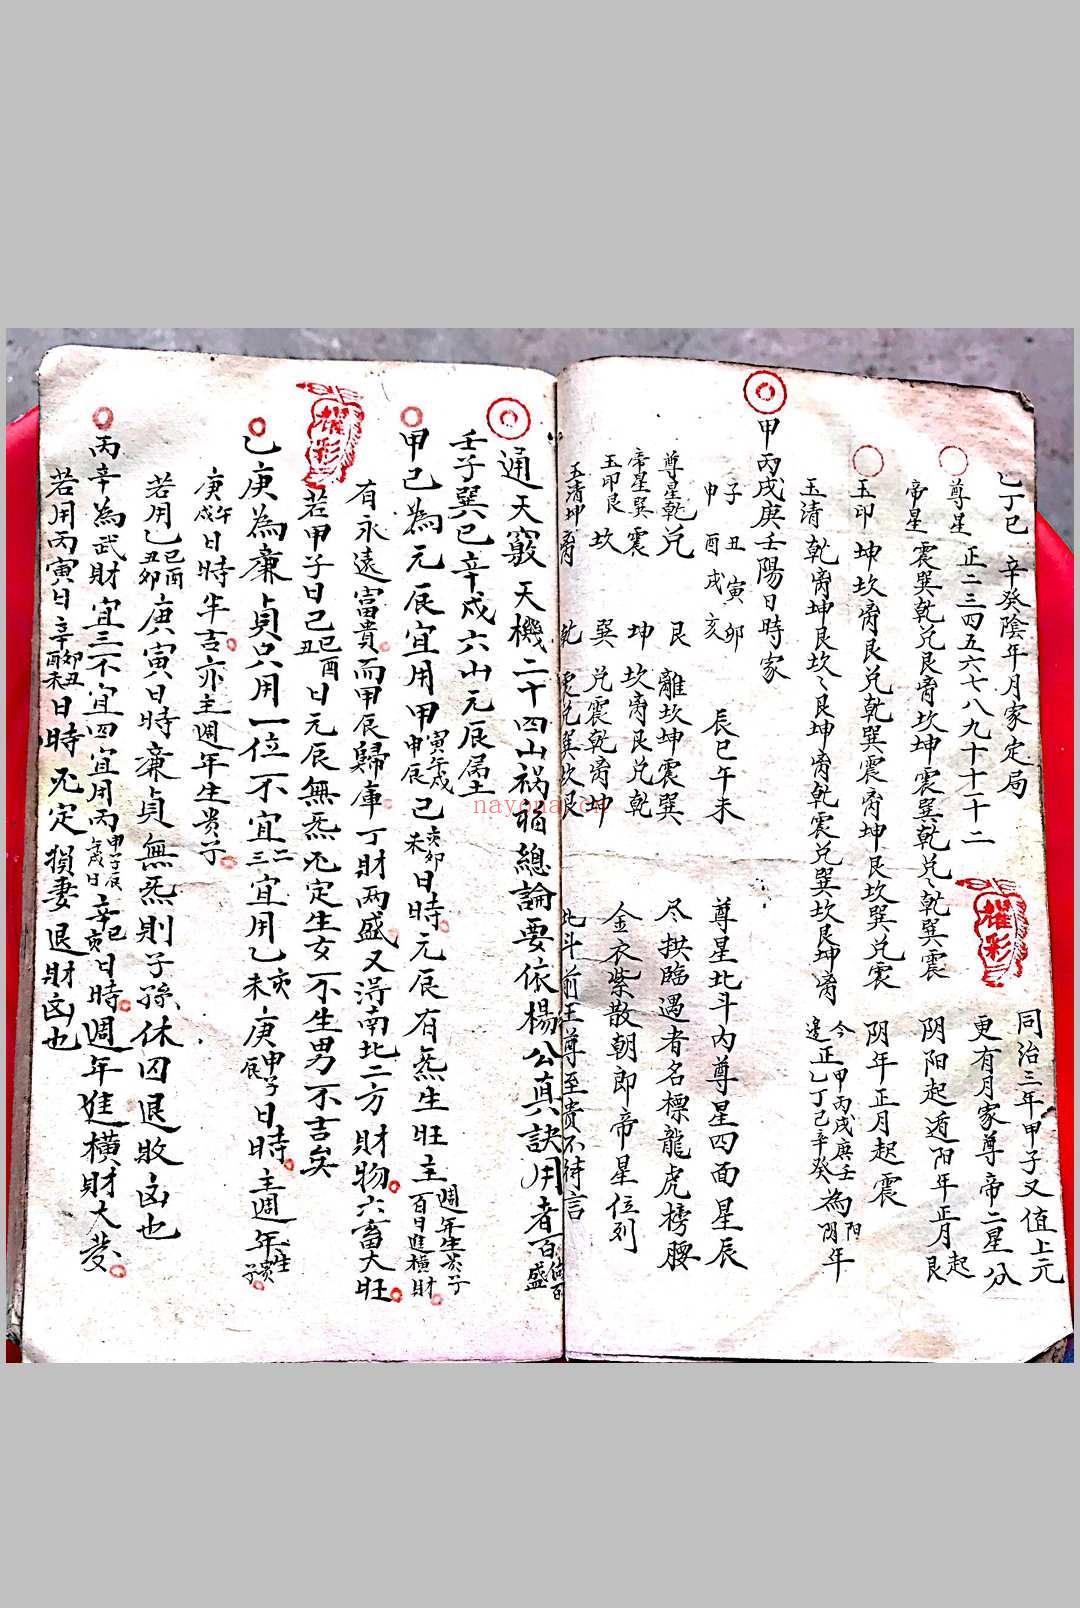 乙丁巳 辛癸陰年月家定局 同治三年甲子又值上元
尊星 正二三四五六七八九十十一十二 更有月家尊帝二星分
帝星 震巽乾兌艮离坎坤震巽乾兌〻乾巽震 阴阳起遁阳年正月起艮
玉印 坤坎离艮兌乾巽震离坤艮坎巽兌震 阴年正月起震
玉清 乾离坤艮坎〻艮坤离乾震兌巽坎艮坤离 今甲丙戌庚壬為阳
逢正乙丁己辛癸為阴年
甲丙戌庚壬陽日時家
子丑寅卯 辰巳午未 尊星北斗內尊星四面星辰
申酉戌亥
尊星乾兌 艮 離坎坤震巽 尽拱臨遇者名標龍虎榜腰
帝星巽震 坤 坎离艮兌乾 金衣紫散朝即帝星位列
玉印艮坎 巽 兌震乾离坤 北斗前王尊至贵不待言
玉清坤离 乾 震兌巽坎艮
通天竅 天機二十四山祸福總論要依楊公真訣用者百
壬子巽巳辛戌六山元辰属土
甲己為元辰宜用甲寅午戌申辰己亥卯未日時元辰有炁生旺主週年生贵子百日進橫財
有永遠富貴而甲辰歸庫丁財两盛又淂南北二方財物六畜大旺
若甲子日己巳酉丑日元辰無炁不定生女不生男不吉矣
乙庚為廉貞只用一位不宜二三宜用乙亥未庚申子辰日時主週年生贵子
庚午戌日時半吉亦主週年生贵子
若用乙巳酉丑卯庚寅日時廉貞無炁則子孫休囚退敗凶也
丙辛為武財宜三不宜四宜用丙申子辰日時週年進橫財大發
若用丙寅日辛卯丑酉未日時 不定損妻退財凶也
璀彩
璀彩
nayona.cn